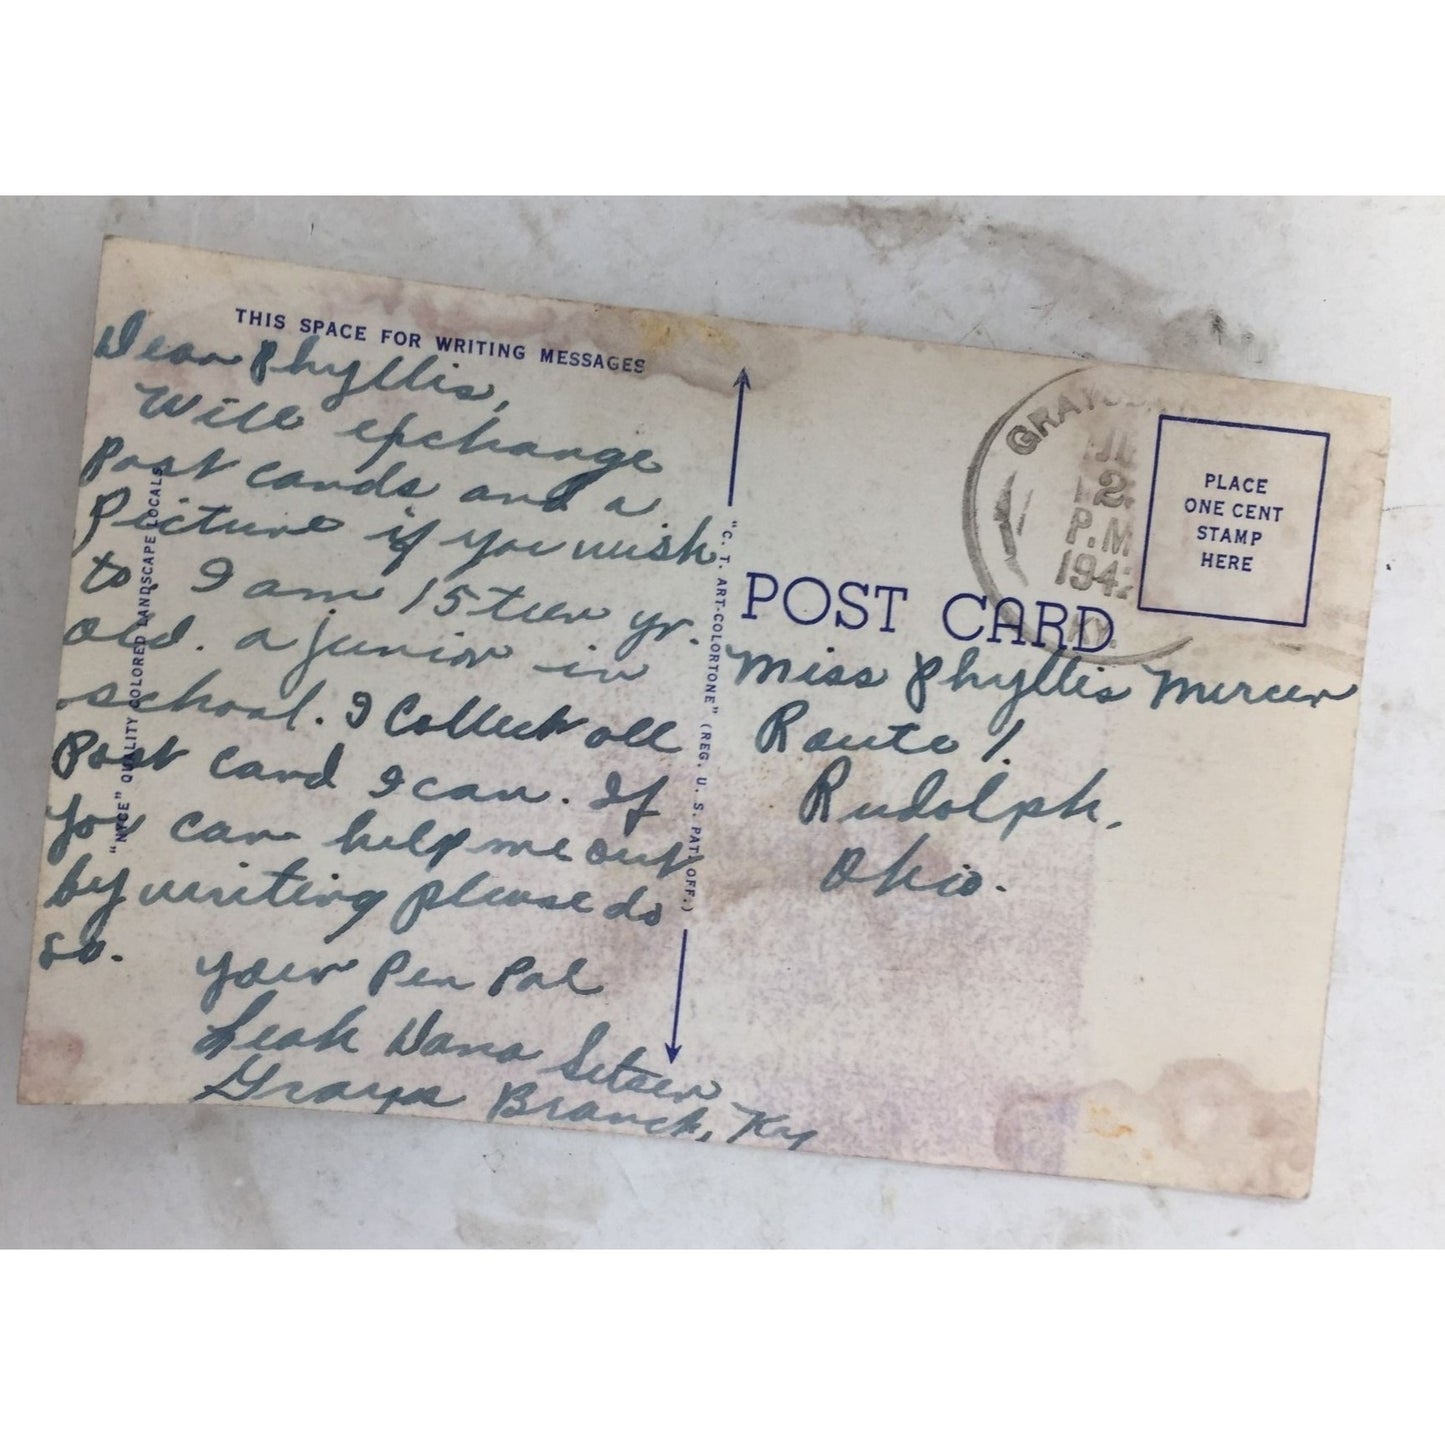 THIS SPACE FOR WRITING MESSAGES
Dear Phyllis,
Will exchange
Post cards and a
Picture if you wish
to. I am 15teen yr.
old. a junior in
school. I Collect all
Post Card I can. If
You can help me out
by writing please do
so.
Your Pen Pal
Leah Dana
Branch, Ky
"NYCE" QUALITY COLORED LANDSCAPE LOCALS
"C. T. ART-COLORTONE" (REG. U. S. PAT. OFF.)
P.M
PLACE
ONE CENT
STAMP
HERE
POST CARD
Miss Phyllis Mercer
Route 1.
Rudolph,
Ohio.